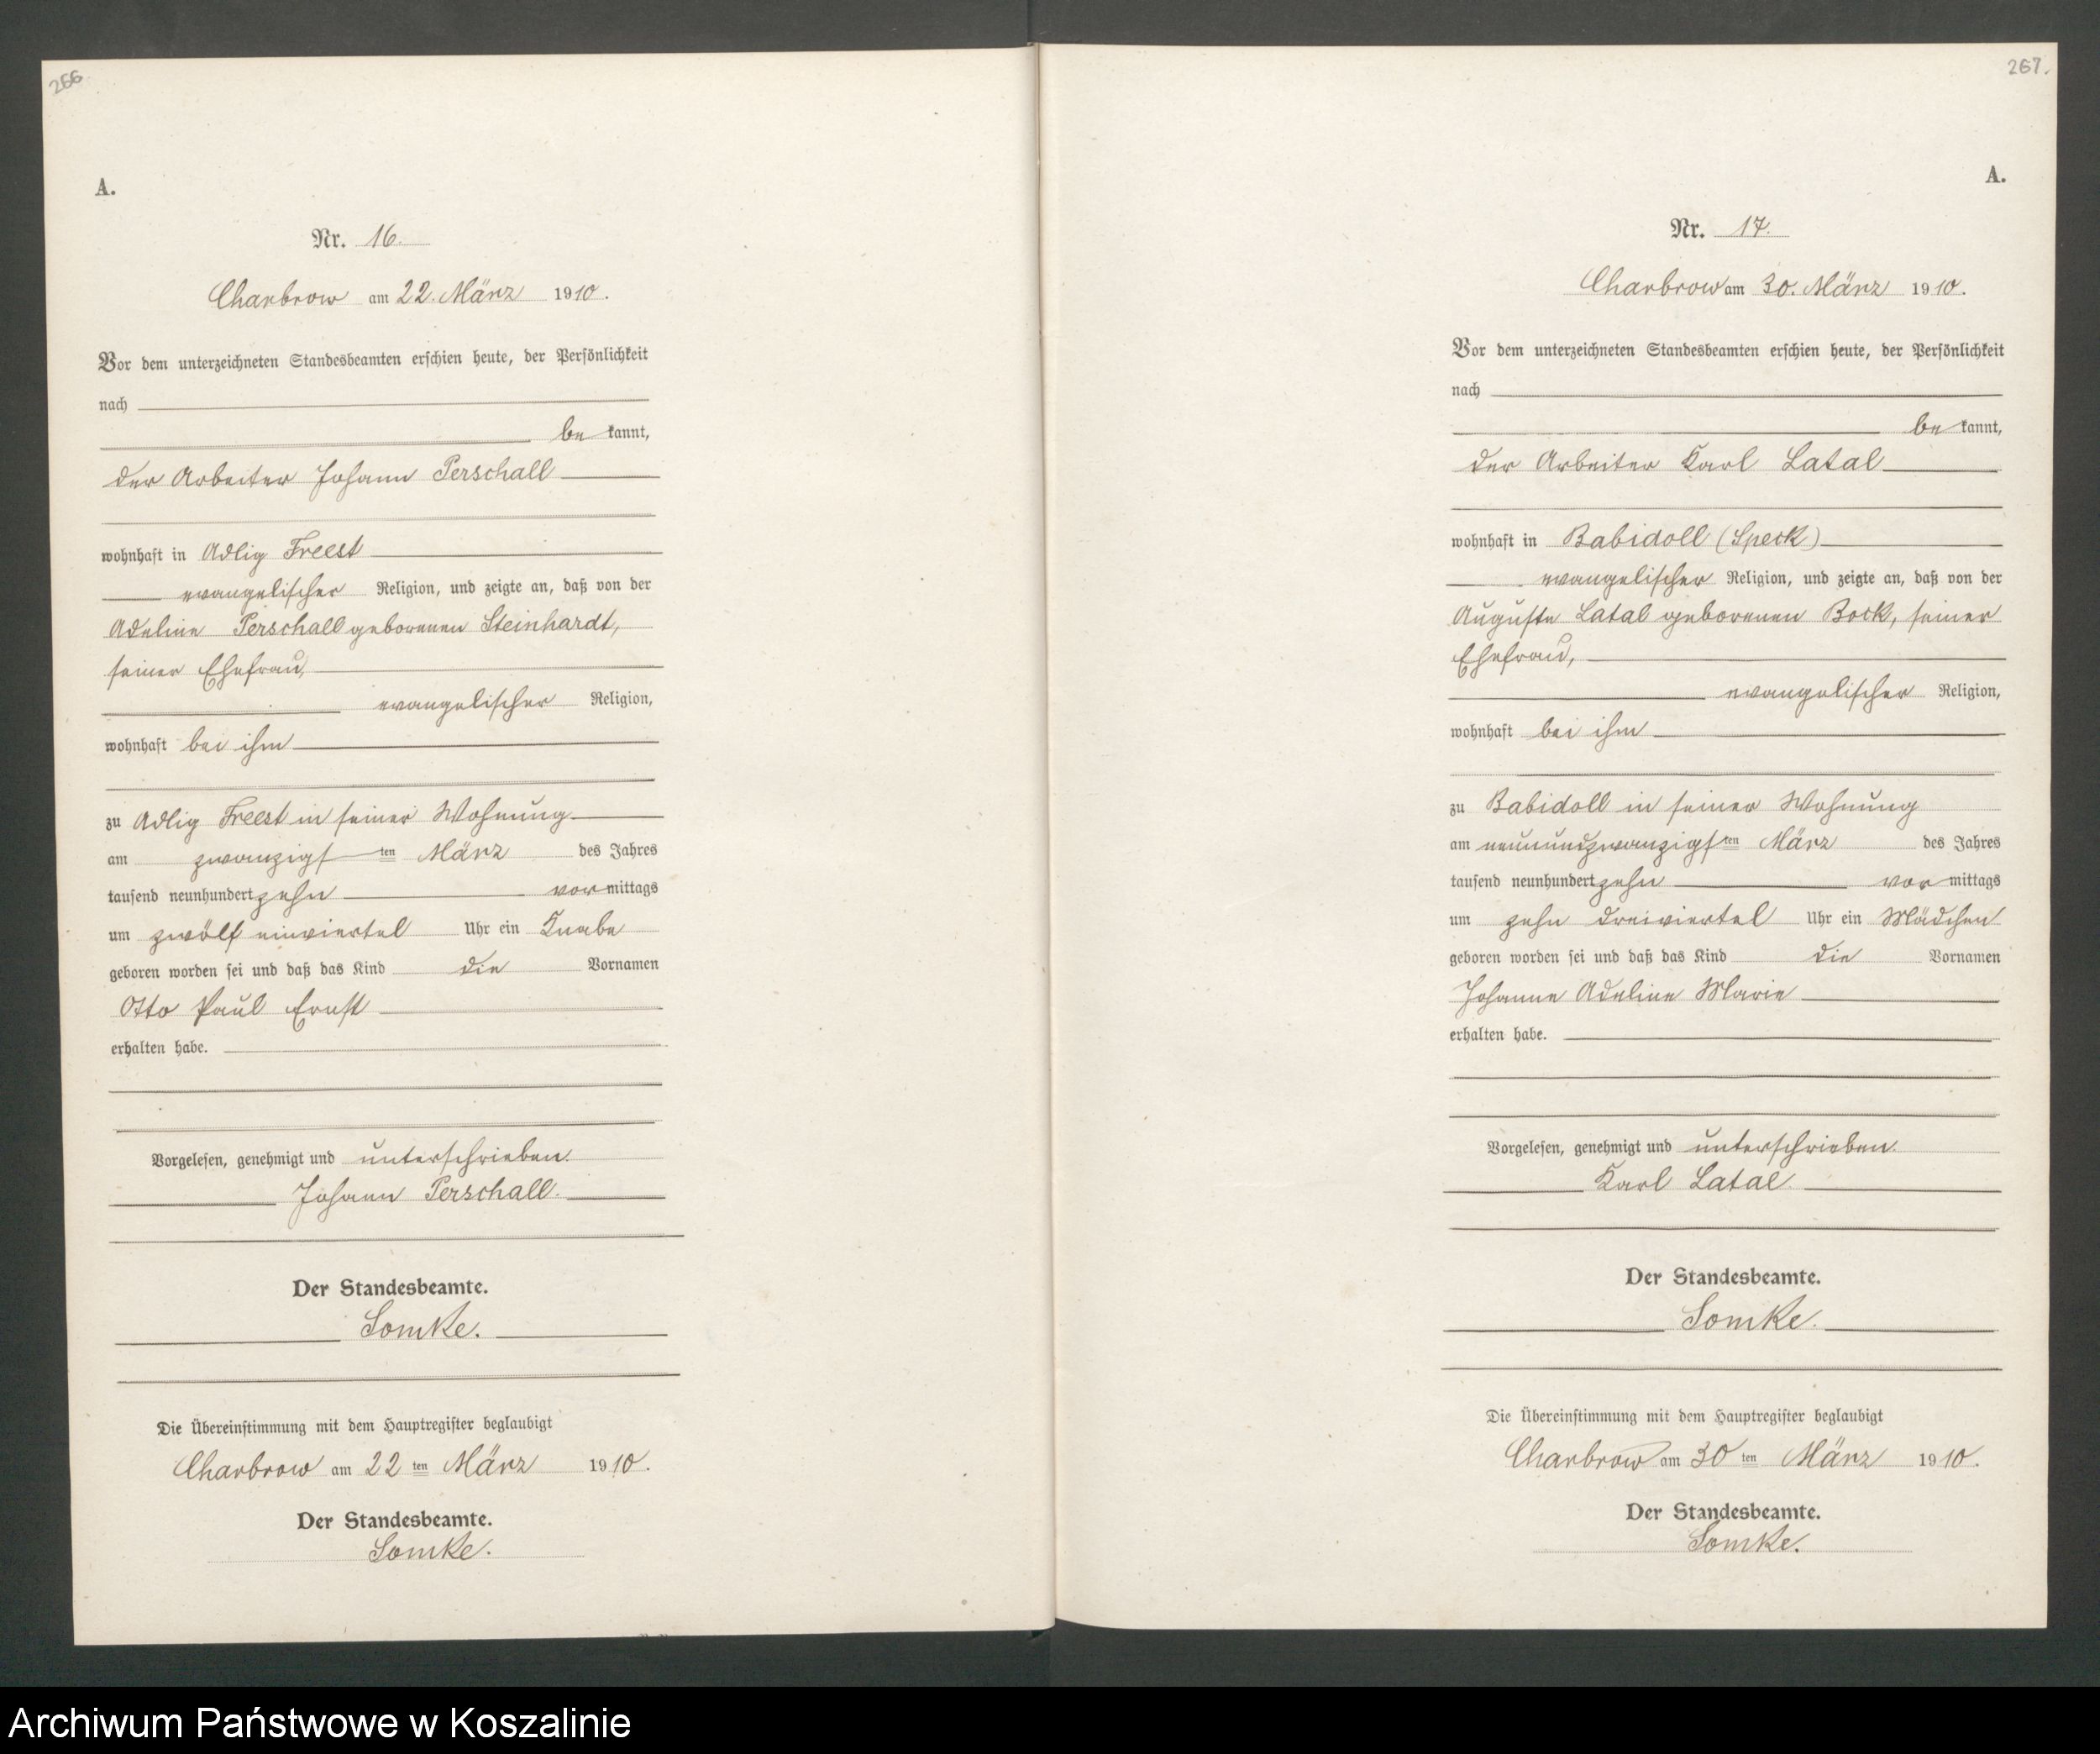 266.
A.
Nr. 16.
Charbrow am 22. März 1910.
Vor dem unterzeichneten Standesbeamten erschien heute, der Persönlichkeit
nach
be kannt,
der Arbeiter Johann Perschall
wohnhaft in Adlig Freest
evangelischer Religion, und zeigte an, daß von der
Adeline Perschall geborenen Steinhardt,
seiner Ehefrau,
evangelischer Religion,
wohnhaft bei ihm
zu Adlig Freest in seiner Wohnung
am zwanzigsten März des Jahres
tausend neunhundert zehn vormittags
um zwölf einviertel Uhr ein Knabe
geboren worden sei und daß das Kind die Vornamen
Otto Paul Ernst
erhalten habe.
Vorgelesen, genehmigt und unterschrieben.
Johann Perschall.
Der Standesbeamte.
Somke.
Die Übereinstimmung mit dem Hauptregister beglaubigt
Charbrow am 22 ten März 1910.
Der Standesbeamte.
Somke.
267.
A.
Nr. 17.
Charbrow am 30. März 1910.
Vor dem unterzeichneten Standesbeamten erschien heute, der Persönlichkeit
nach
be kannt,
der Arbeiter Karl Latal
wohnhaft in Babidoll (Speck)
evangelischer Religion, und zeigte an, daß von der
Auguste Latal geborenen Bock, seiner
Ehefrau,
evangelischer Religion,
wohnhaft bei ihm
zu Babidoll in seiner Wohnung
am neunundzwanzigsten März des Jahres
tausend neunhundert zehn vor mittags
um zehn dreiviertel Uhr ein Mädchen
geboren worden sei und daß das Kind die Vornamen
Johanne Adeline Marie
erhalten habe.
Vorgelesen, genehmigt und unterschrieben.
Karl Latal.
Der Standesbeamte.
Somke.
Die Übereinstimmung mit dem Hauptregister beglaubigt
Charbrow am 30 ten März 1910.
Der Standesbeamte.
Somke.
Archiwum Państwowe w Koszalinie